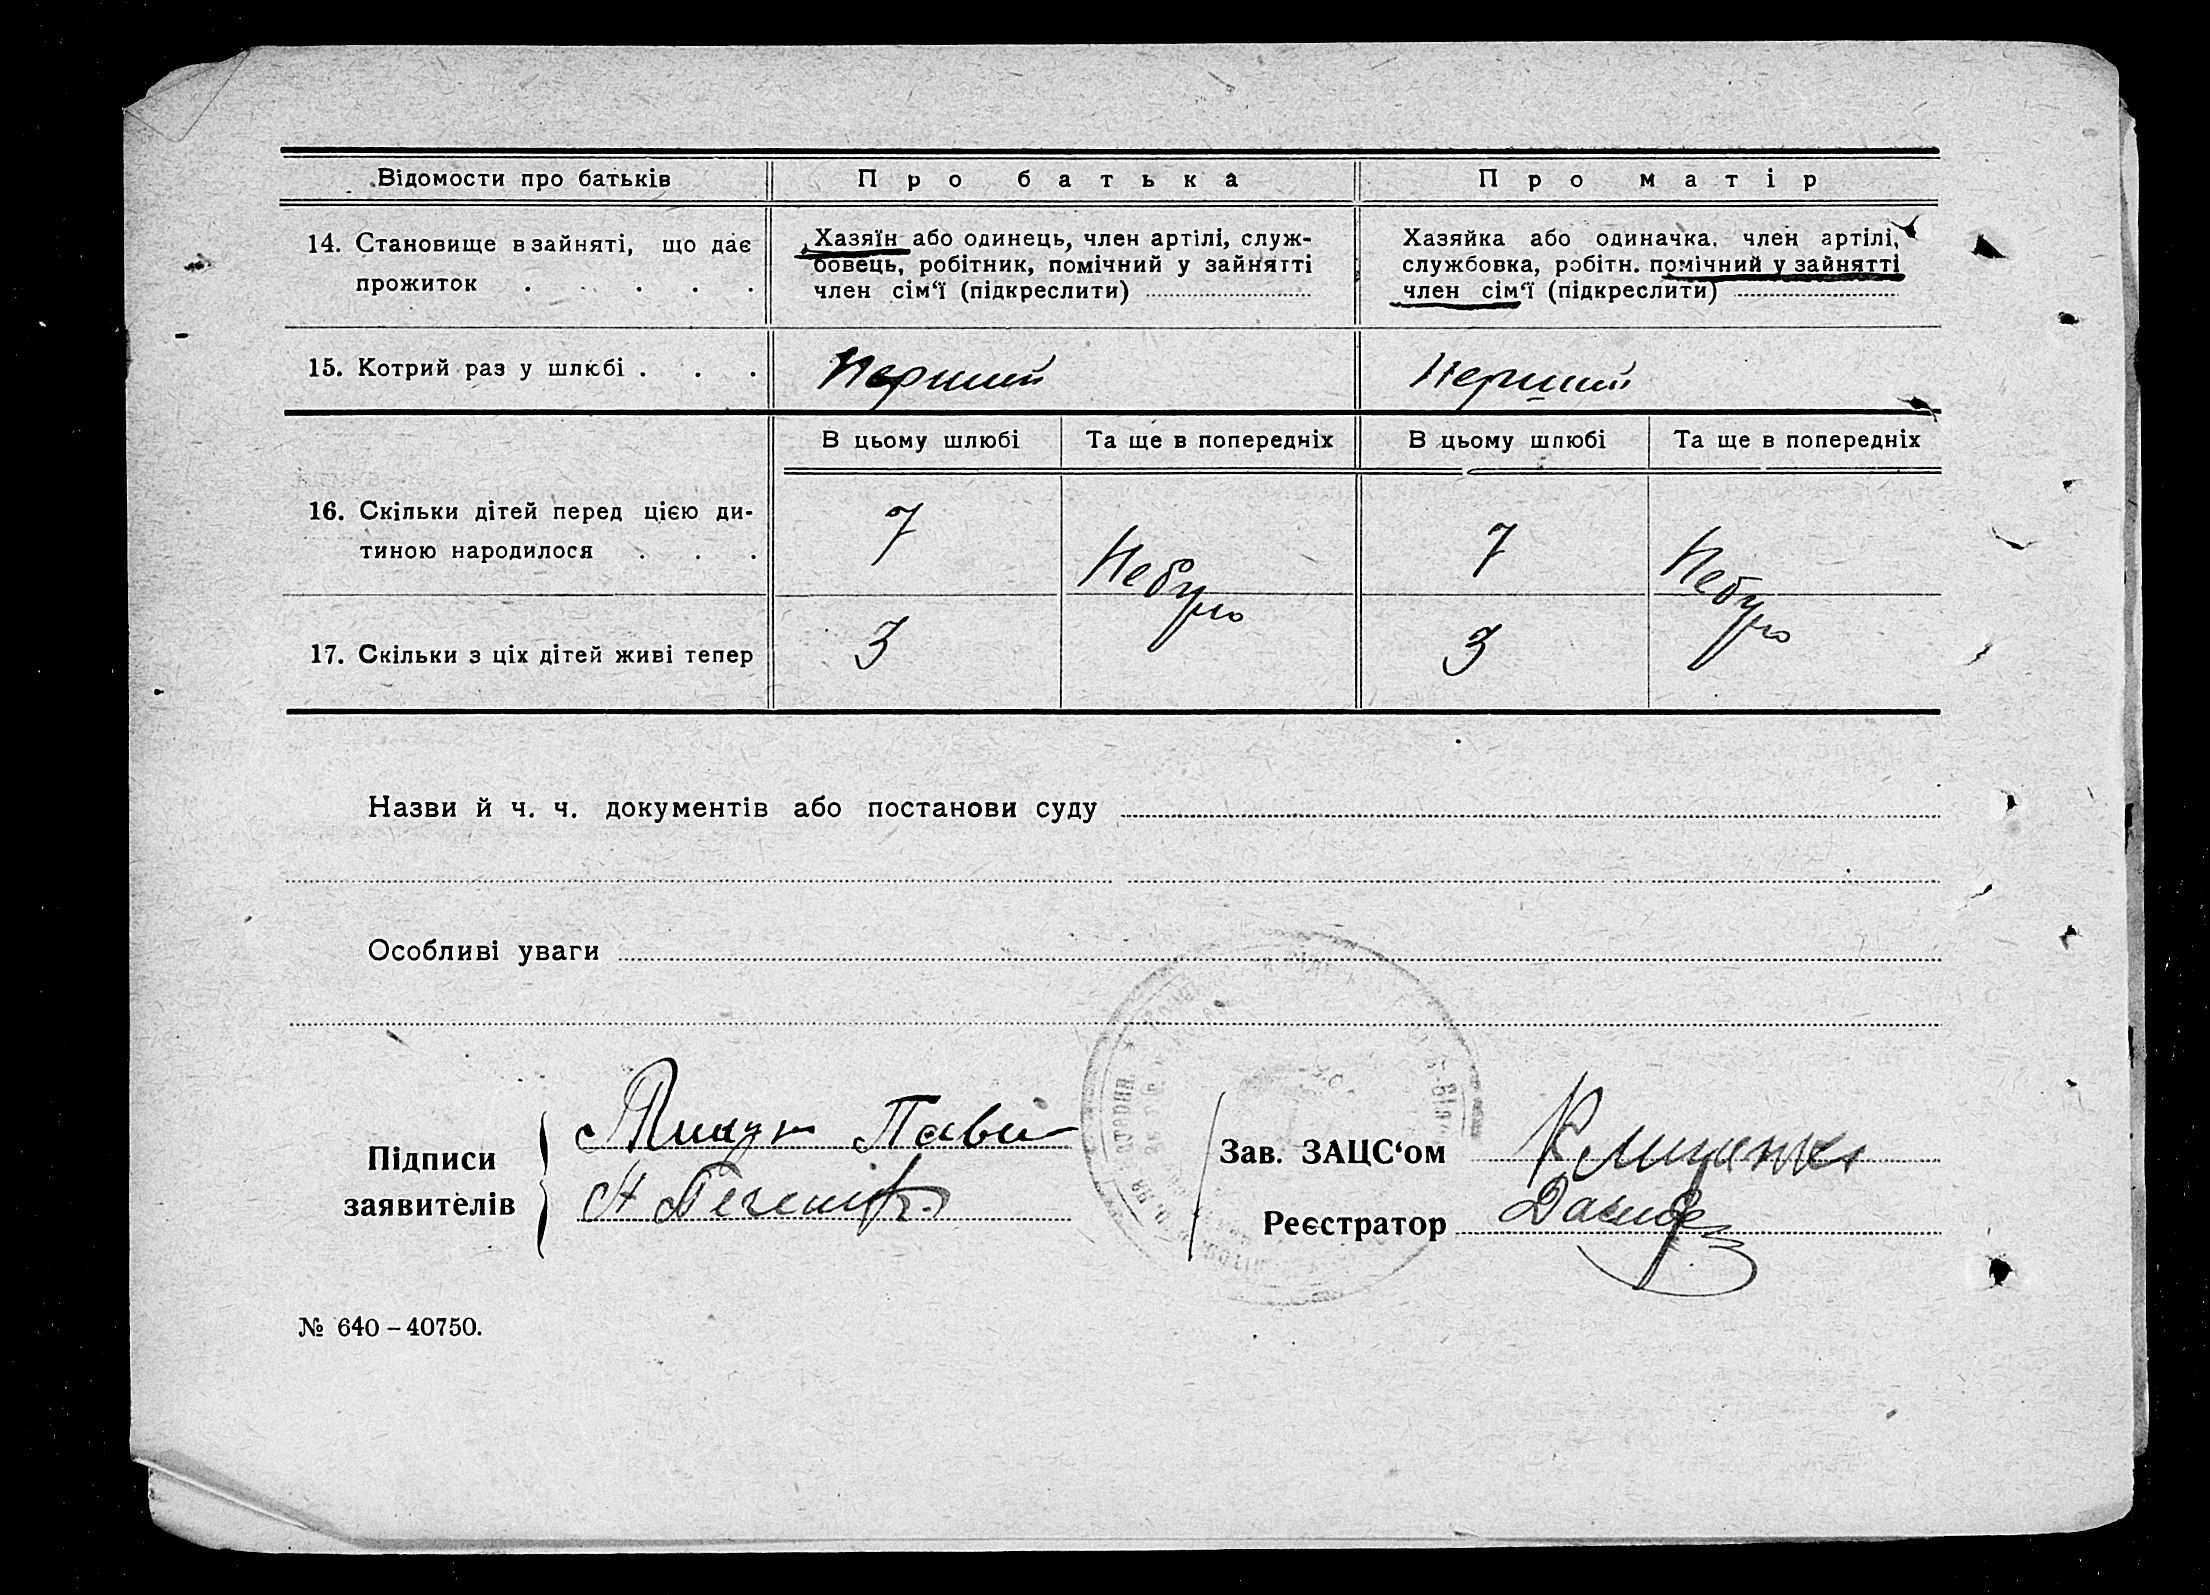 Відомости про батьків Про батька Про матір
14. Становище в зайняті, що дає
прожиток . . . . .
Хазяїн або одинець, член артілі, служ-
бовець, робітник, помічний у зайнятті
член сім‘ї (підкреслити)
Хазяйка або одиначка, член артілі,
службовка, робітн. помічний у зайнятті
член сім‘ї (підкреслити)
15. Котрий раз у шлюбі . . . Перший Перший
В цьому шлюбі Та ще в попередніх В цьому шлюбі Та ще в попередніх
16. Скільки дітей перед цією ди-
тиною народилося . . . 7 Небуло 7 Небуло
17. Скільки з ціх дітей живі тепер 3 3
Назви й ч. ч. документів або постанови суду
Особливі уваги
Підписи
заявителів
Зав. ЗАЦС‘ом
Реєстратор
№ 640 – 40750.